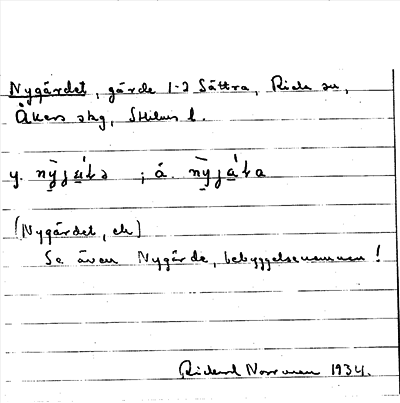 Nygärdet, gärde 1-2 Sättra, Riala sn,
Åkers skg, Sthlms l.
y. nỳja̱'tə ; á. nỳja̱'ta
(Nygärdet, ek)
Se även Nygärde, bebyggelsenamnen!
Rickard Norrman 1934.